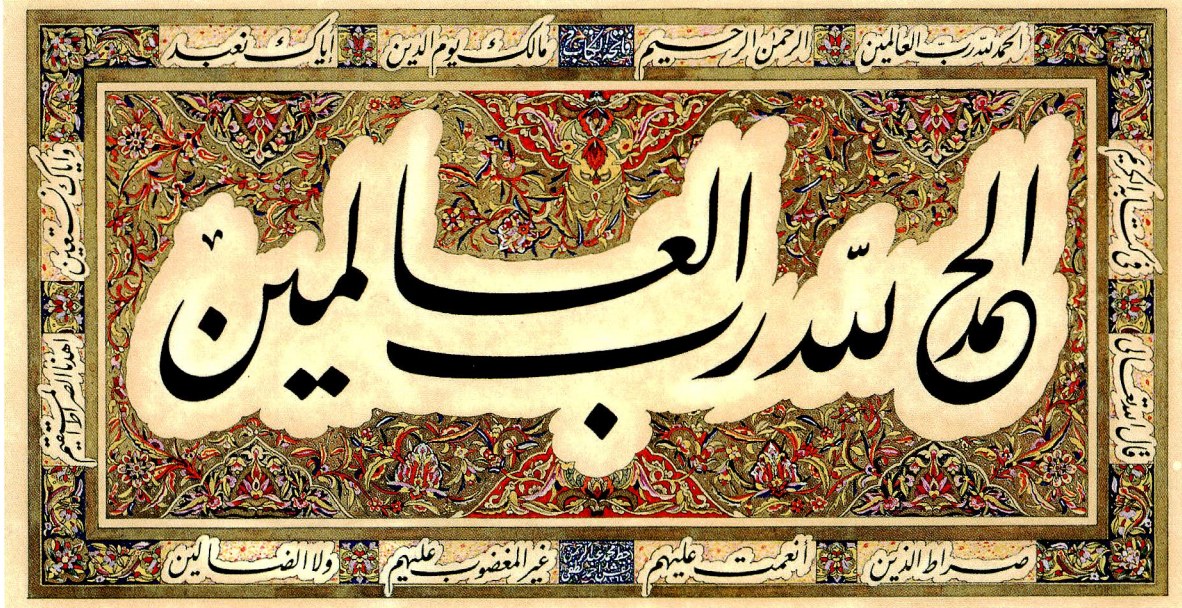 قال الله تعالى
في كتابه الكريم
الحمد لله رب العالمين
الرحمن الرحيم
فاتحة الكتاب
مالك يوم الدين
إياك نعبد
وإياك نستعين
اهدنا الصراط المستقيم
صراط الذين
أنعمت عليهم
غير المغضوب عليهم
ولا الضالين
الحمد لله رب العالمين